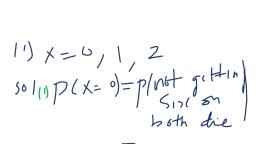 11) x = 0, 1, 2
sol (1) P(x = 0) = p(not gettin
six on
both die)